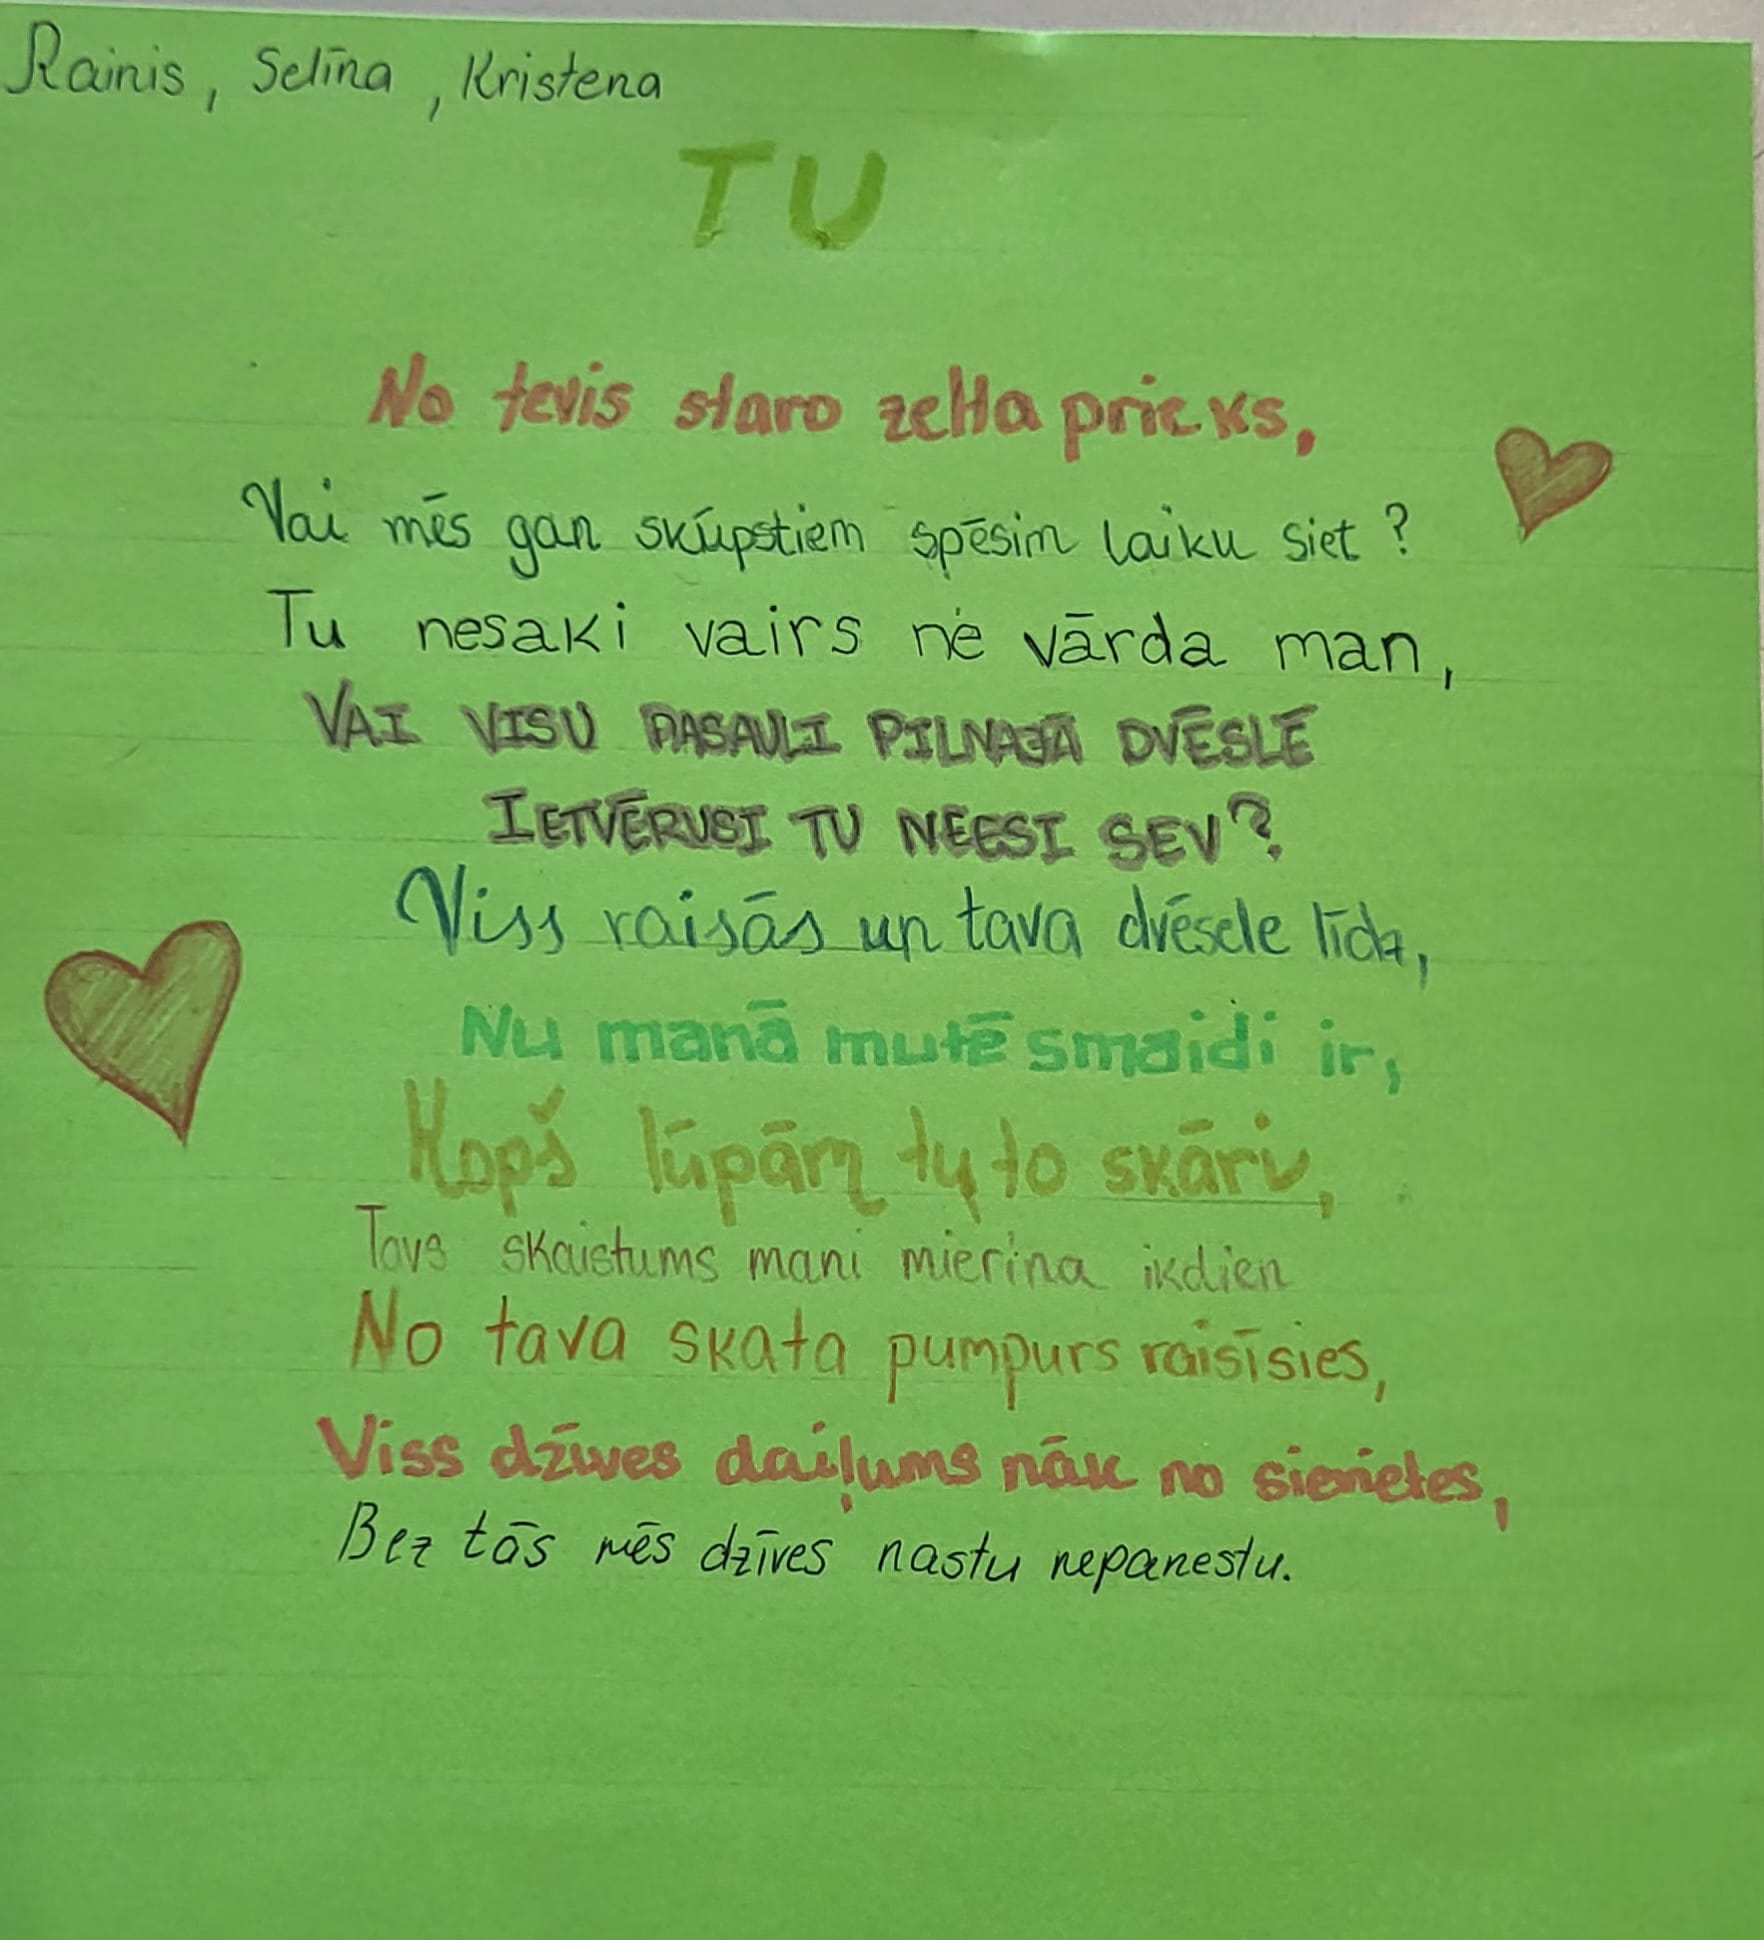 Rainis, Selīna, Kristena
TU
No tevis staro zelta prieks,
Vai mēs gan skūpstiem spēsim laiku siet?
Tu nesaki vairs ne vārda man,
VAI VISU PASAULI PILNAJĀ DVĒSLĒ
IETVĒRUSI TU NEESI SEV?
Viss raisās un tava dvēsele līda,
Nu manā mutē smaidi ir,
Kopš lūpām tu to skāri,
Tavs skaistums mani mierina ikdien
No tava skata pumpurs raisīsies,
Viss dzīves daiļums nāk no sievietes,
Bez tās mēs dzīves nastu nepanestu.